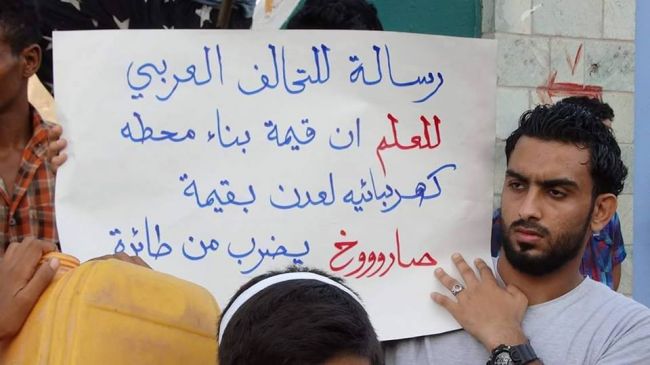 رسالة للتحالف العربي
للعلم ان قيمة بناء محطه
كهربائيه لعدن بقيمة
صاروووخ يضرب من طائرة